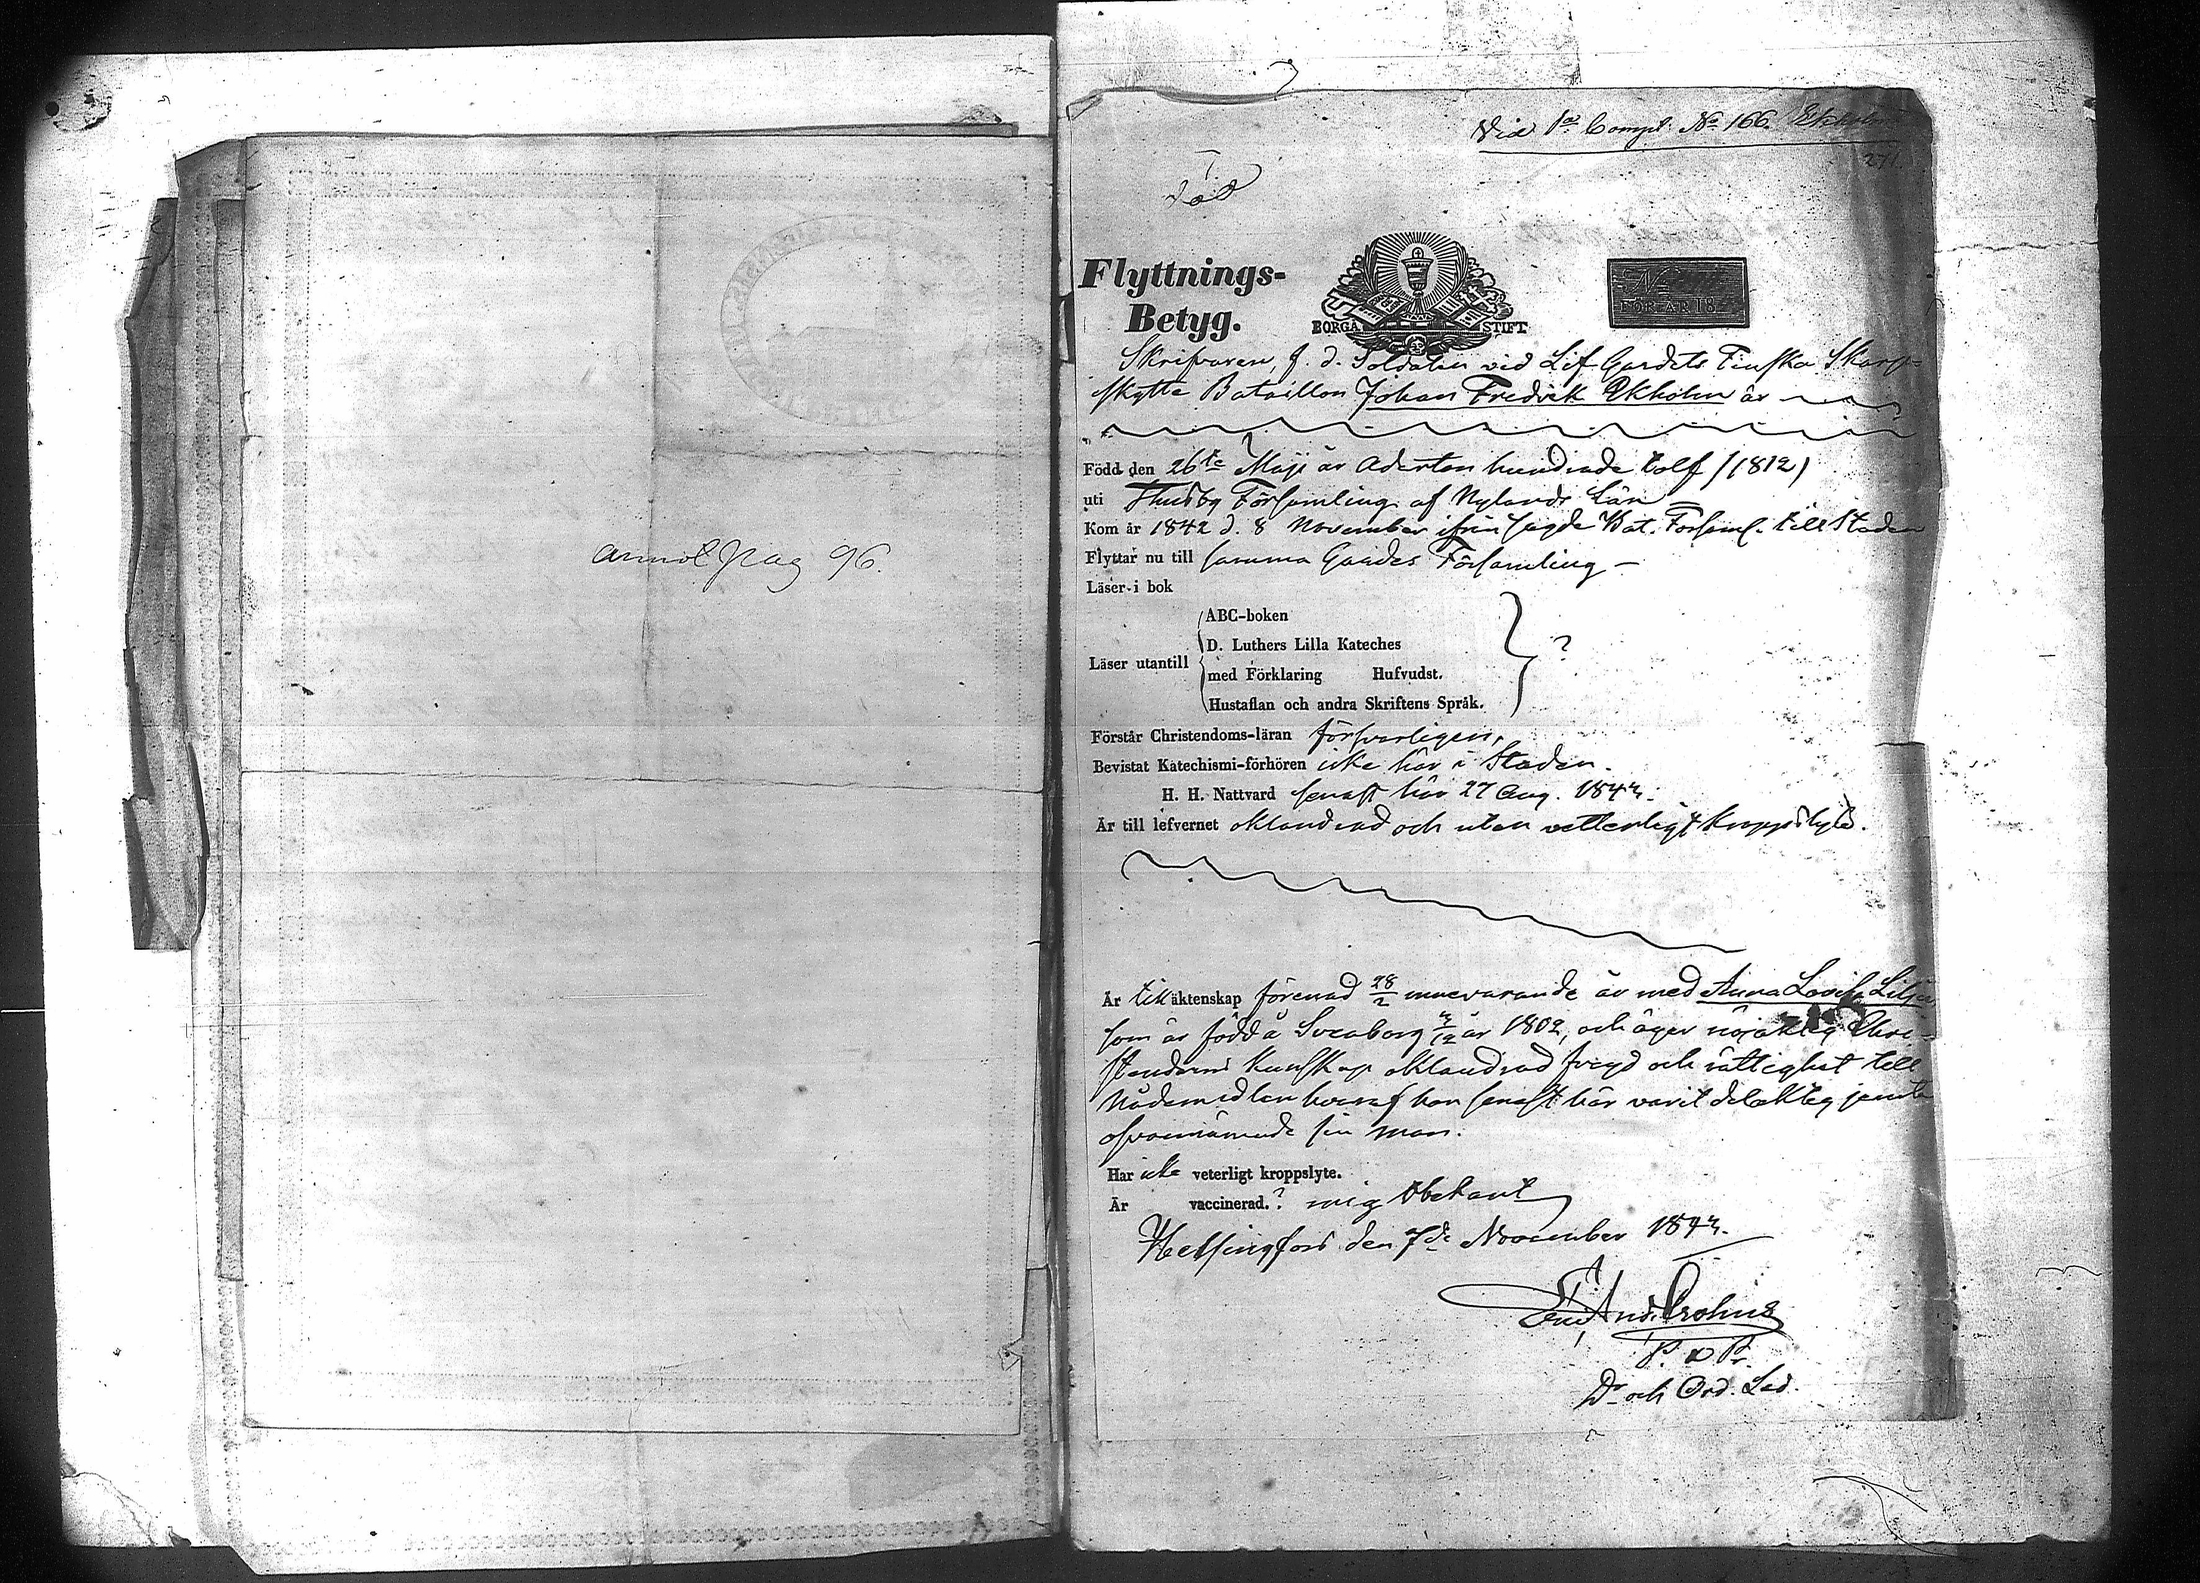 anmäl pag 96.
Vid 1a Comp. No 166. Ekholm
271.
Död
Flyttnings-
Betyg.
BORGÅ STIFT
No
FÖR ÅR 18
Skrifvaren, f. d. Soldaten vid Lif Gardets Finska Skarp-
skytte Bataillon Johan Fredrik Ekholm är
Född den 26te Maji år Aderton hundrade tolf (1812)
uti Thusby Församling af Nylands Län
Kom år 1842 d. 8 November ifrån sagde Bat. Forsaml. till Staden
Flyttar nu till samma Gardes Församling –
Läser i bok
ABC-boken
D. Luthers Lilla Kateches
Läser utantill
med Förklaring Hufvudst.
?
Hustaflan och andra Skriftens Språk.
Förstår Christendoms-läran försvarligen,
Bevistat Katechismi-förhören icke här i Staden.
H. H. Nattvard senast här 27 Aug. 1843.
Är till lefvernet oklandrad och utan vetterligt kroppslyte.
Är till äktenskap förenad 28/2 innevarande år med Anna Lovisa
som är född å Sveaborg 3/12 år 1802, och äger nöjaktig Chri-
stendoms kunskap oklandrad frejd och rättighet till
Nådemedlen hvaraf hon senast här varit delaktig jemte
ofvannämnde sin man.
Har icke veterligt kroppslyte.
Är vaccinerad.? mig obekant
Helsingfors den 7de November 1843.
And. Crohns
P. o Pr.
Dr och Ord. Led.